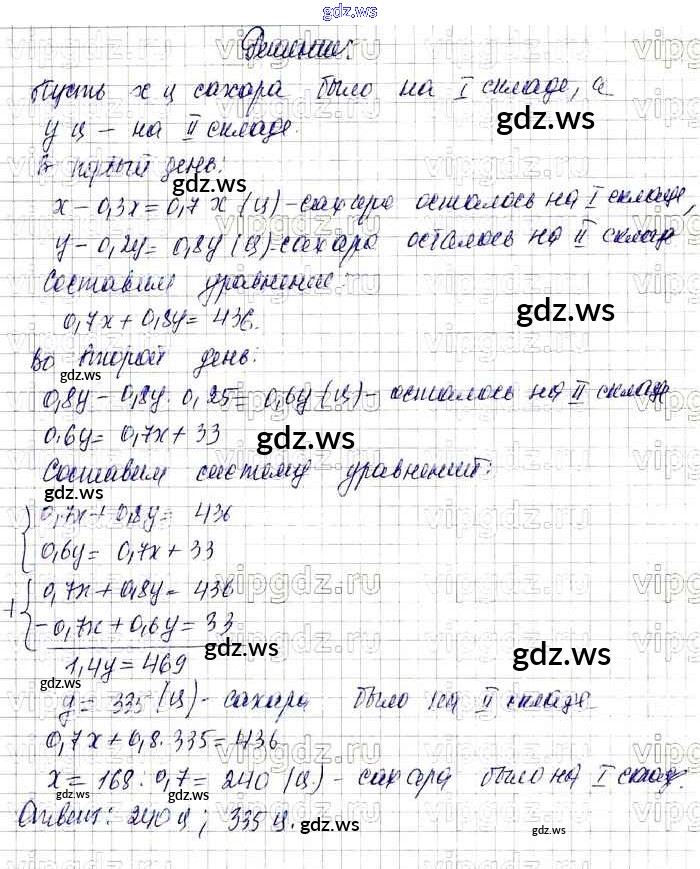 gdz.ws
Решение:
Пусть x ц сахара было на I складе, а
gdz.ws
y ц – на II складе.
В первый день:
gdz.ws
x – 0,3x = 0,7x (ц) – сахара осталось на I складе,
y – 0,2y = 0,8y (ц) – сахара осталось на II складе
Составим уравнение:
gdz.ws
0,7x + 0,8y = 436.
Во второй день:
gdz.ws
0,8y – 0,8y · 0,25 = 0,6y (ц) – осталось на II складе
0,6y = 0,7x + 33
gdz.ws
Составим систему уравнений:
gdz.ws
0,7x + 0,8y = 436
0,6y = 0,7x + 33
vipgdz.ru
0,7x + 0,8y = 436
+
-0,7x + 0,6y = 33
gdz.ws
gdz.ws
1,4y = 469
gdz.ws
y = 335 (ц) – сахара было на II складе
0,7x + 0,8 · 335 = 436
x = 168 : 0,7 = 240 (ц) – сахара было на I складе.
gdz.ws gdz.ws
Ответ: 240 ц; 335 ц.
gdz.ws
gdz.ws